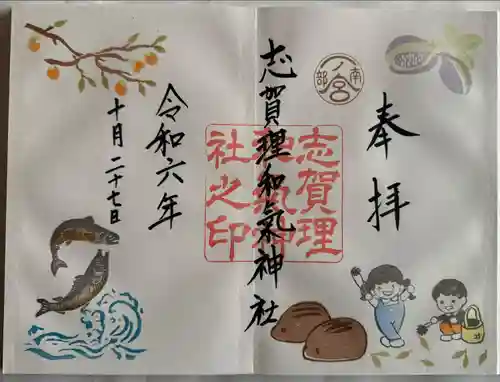 奉拝
南部
一ノ宮
志賀理和氣神社
志賀理
和氣神
社之印
令和六年
十月二十七日